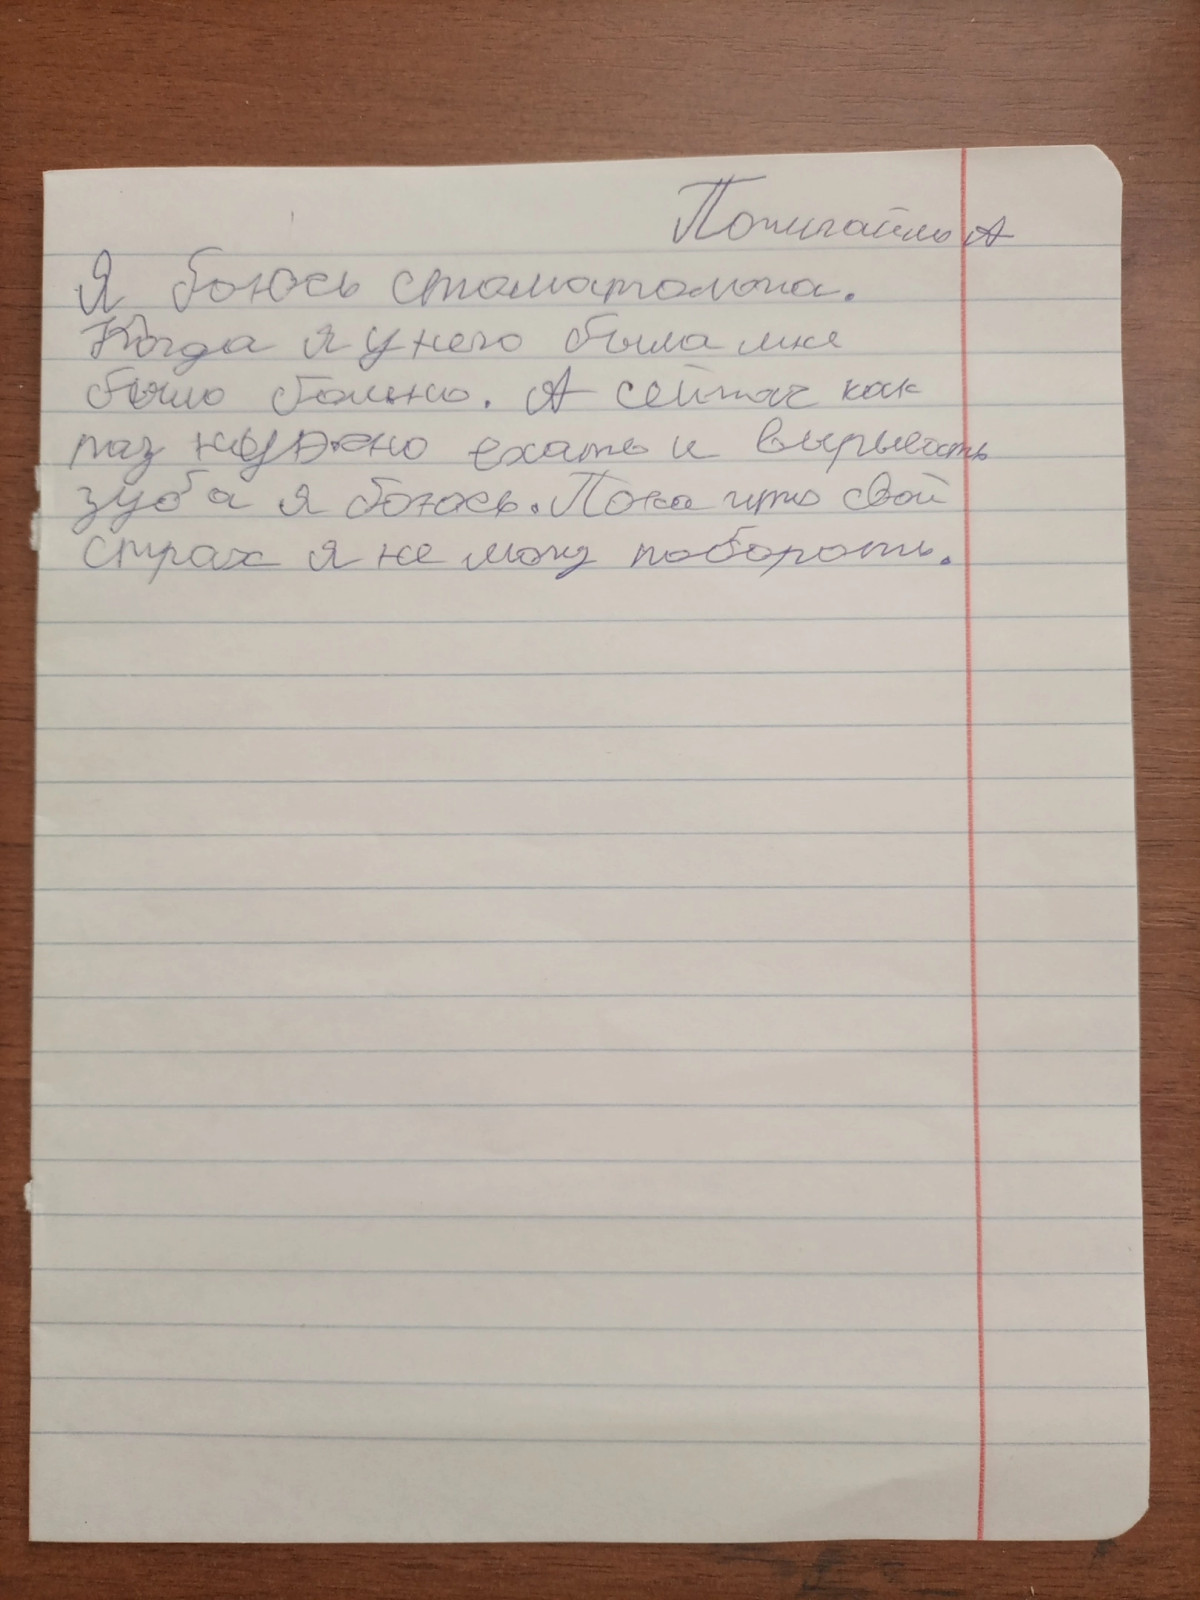 Пожигайло А
Я боюсь стоматолога.
Когда я у него была мне
было больно. А сейчас как
раз нужно ехать и вырывать
зуба я боюсь. Пока что свой
страх я не могу побороть.